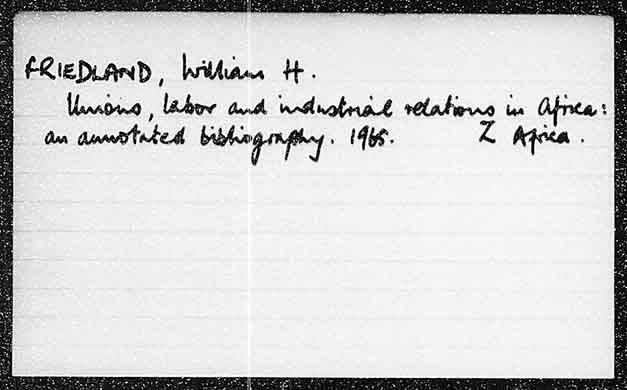 FRIEDLAND, William H.
Unions, labor and industrial relations in Africa:
an annotated bibliography. 1965. Z Africa.